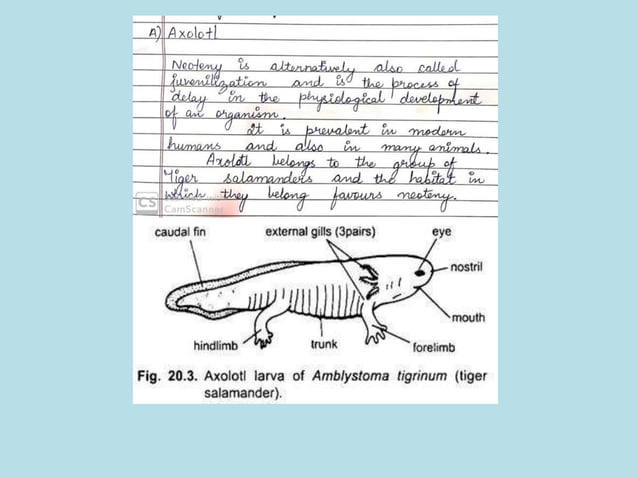 A) Axolotl
Neoteny is alternatively also called
juvenilization and is the process of
delay in the physiological development
of an organism.
It is prevalent in modern
humans and also in many animals.
Axolotl belongs to the group of
Tiger salamanders and the habitat in
which they belong favours neoteny.
CS CamScanner
caudal fin external gills (3pairs) eye
nostril
mouth
hindlimb trunk forelimb
Fig. 20.3. Axolotl larva of Amblystoma tigrinum (tiger
salamander).